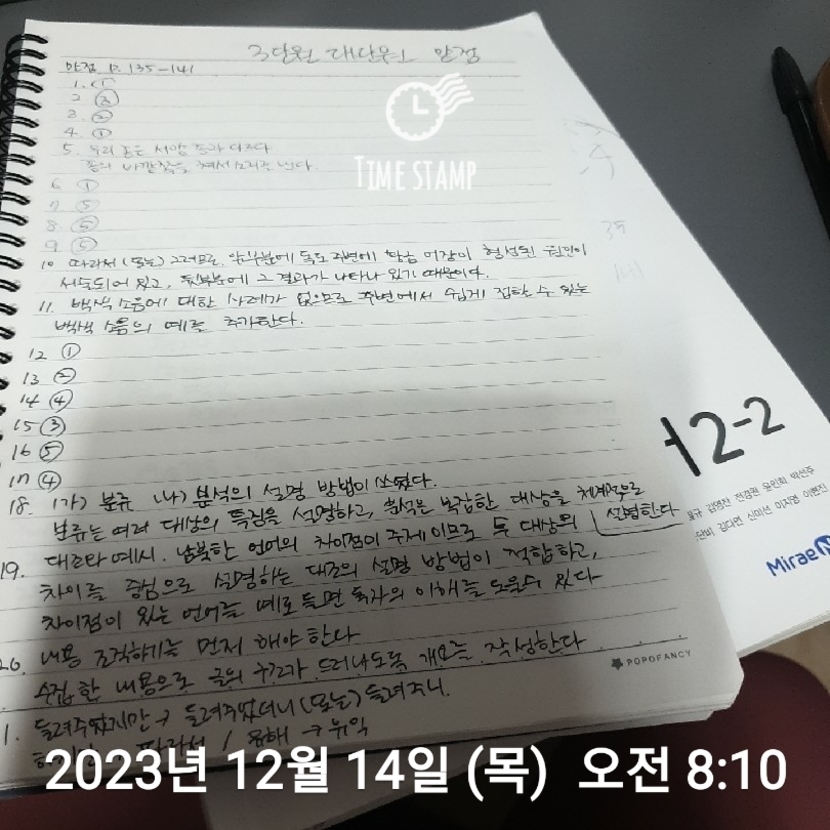 3단원 대단원 만점
만점 P. 135-141
1. ⑤
2 ③
3. ②
4. ①
5. 우리 돈은 서양 돈과 다르다
6 ①
7 ⑤
8 ⑤
9 ⑤
10 따라서 (또는) 그러므로. 앞부분에 독도 주변에 황금 어장이 형성된 원인이
서술되어 있고, 뒷부분에 그 결과가 나타나 있기 때문이다.
11. 백색 소음에 대한 사례가 없으므로 주변에서 쉽게 접할 수 있는
백색 소음의 예를 추가한다.
12 ①
13 ②
14 ④
15 ③
16 ⑤
17 ④
18. (가) 분류 (나) 분석의 설명 방법이 쓰였다.
분류는 여러 대상의 특징을 설명하고, 분석은 복잡한 대상을 체계적으로
설명한다
19. 대조와 예시. 남북한 언어의 차이점이 주제이므로 두 대상의
차이를 중심으로 설명하는 대조의 설명 방법이 적합하고,
차이점이 있는 언어를 예로 들면 독자의 이해를 도울수 있다
20. 내용 조직하기를 먼저 해야 한다
수집한 내용으로 글의 구조가 드러나도록 개요를 작성한다
1. 들려주었지만 → 들려주었더니 (또는) 들려주니.
따라서 / 유해 → 유익
TIME STAMP
2-2
김영찬 전경원 윤인희 박선주
김다연 신미선 이지영 이현진
MiraeN
POPOFANCY
2023년 12월 14일 (목) 오전 8:10